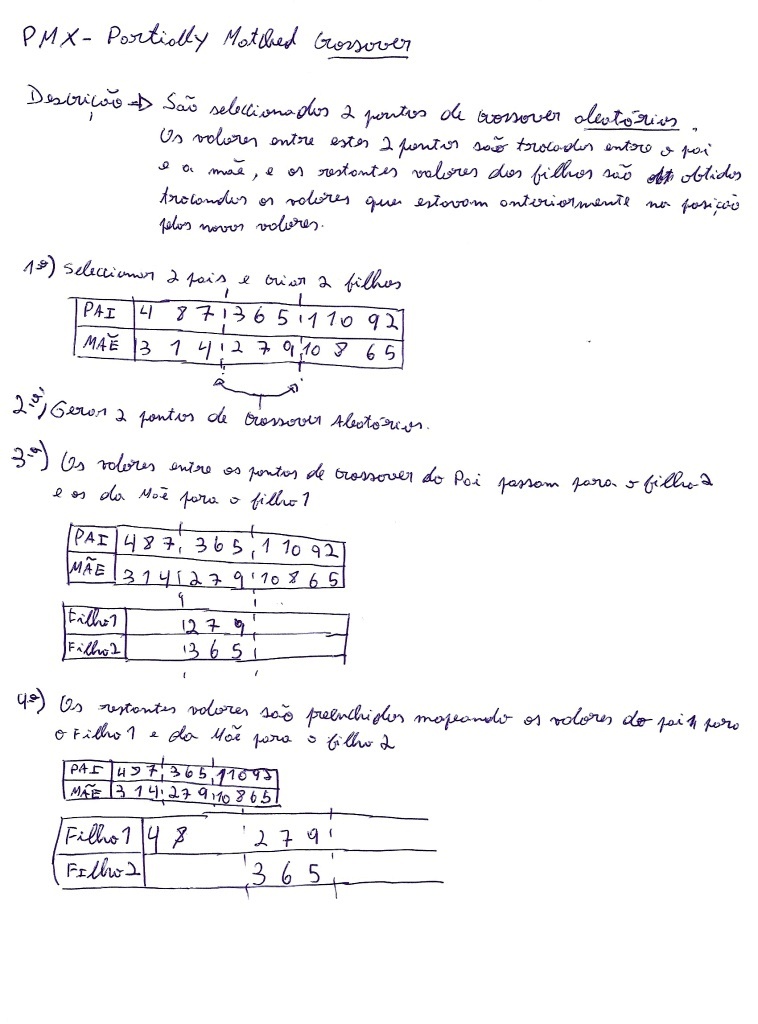 PMX - Partially Matched Crossover
Descrição => São seleccionados 2 pontos de crossover aleatórios.
Os valores entre estes 2 pontos são trocados entre o pai
e a mãe, e os restantes valores dos filhos são obtidos
trocandos os valores que estavam anteriormente na posição
pelos novos valores.
1º) Seleccionar 2 pais e criar 2 filhos
PAI 4 8 7 3 6 5 1 10 9 2
MÃE 3 1 4 2 7 9 10 8 6 5
2º) Gerar 2 pontos de Crossover Aleatórios.
3º) Os valores entre os pontos de crossover do Pai passam para o filho 2
e os da Mãe para o filho 1
PAI 4 8 7 3 6 5 1 10 9 2
MÃE 3 1 4 2 7 9 10 8 6 5
Filho 1 2 7 9
Filho 2 3 6 5
4º) Os restantes valores são preenchidos mapeando os valores do pai para
o Filho 1 e da Mãe para o filho 2
PAI 4 8 7 3 6 5 1 10 9 2
MÃE 3 1 4 2 7 9 10 8 6 5
Filho 1 4 8 2 7 9
Filho 2 3 6 5